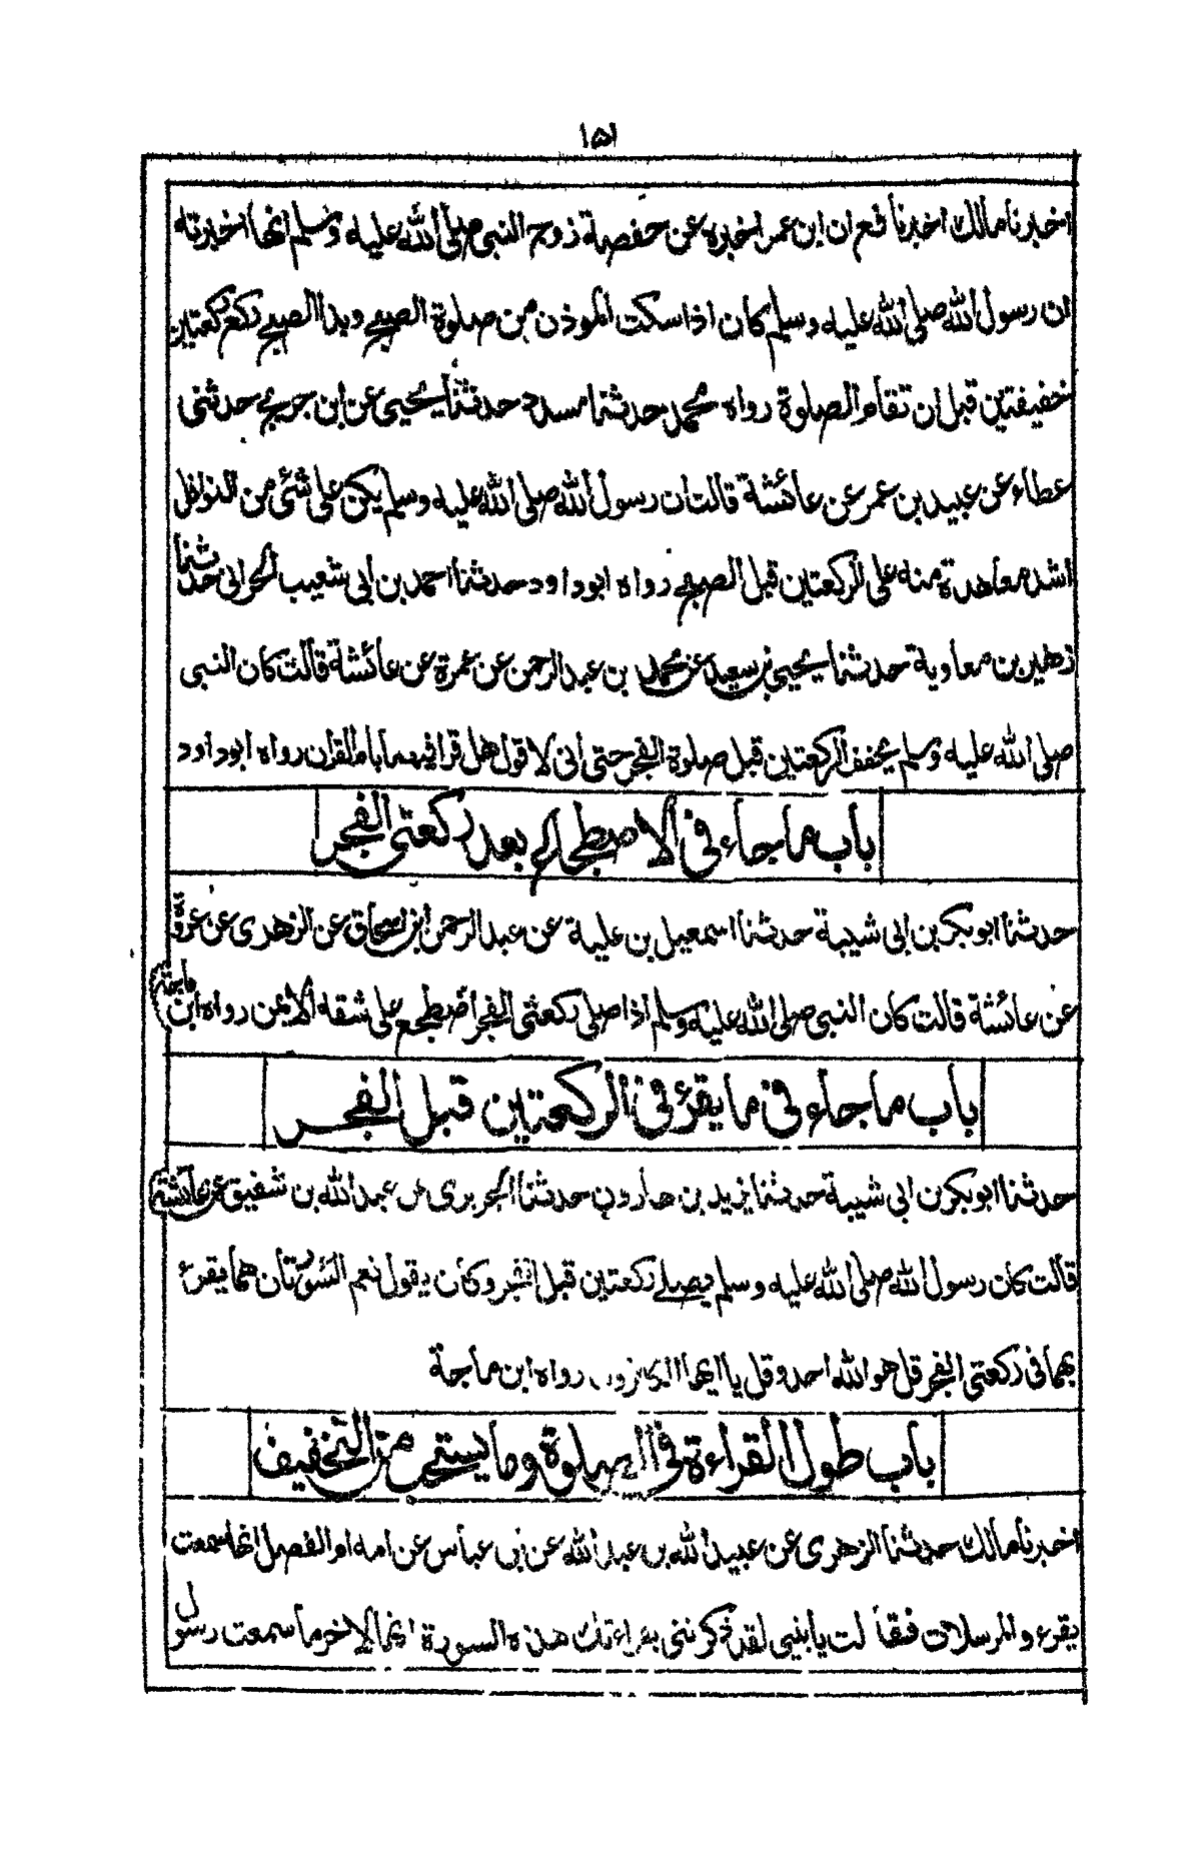 ١٥١
اخبرنا مالك اخبرنا نافع ان ابن عمر اخبره عن حفصة زوج النبي صلى الله عليه وسلم انها اخبرته
ان رسول الله صلى الله عليه وسلم كان اذا سكت الموذن من صلوة الصبح وبدا الصبح ركع ركعتين
خفيفتين قبل ان تقام الصلوة رواه محمد حدثنا مسدد حدثنا يحيى عن ابن جريج حدثنى
عطاء عن عبيد بن عمر عن عائشة قالت ان رسول الله صلى الله عليه وسلم يكن على شئ من النوافل
اشد معاهدة منه على الركعتين قبل الصبح رواه ابو داود حدثنا احمد بن ابي شعيب الحرانى حدثنا
زهير بن معاوية حدثنا يحيى بن سعيد عن محمد بن عبد الرحمن عن عمرة عن عائشة قالت كان النبي
صلى الله عليه وسلم يخفف الركعتين قبل صلوة الفجر حتى انى لا قول هل قرا فيهما بام القران رواه ابو داود
باب ما جاء فى الاضطجاع بعد ركعتى الفجر
حدثنا ابو بكر بن ابي شيبة حدثنا اسمعيل بن علية عن عبد الرحمن ابن اسحاق عن الزهرى عن عروة
عن عائشة قالت كان النبي صلى الله عليه وسلم اذا صلى ركعتى الفجر اضطجع على شقه الايمن رواه ابن ماجة
باب ما جاء فى ما يقرئ فى الركعتين قبل الفجر
حدثنا ابو بكر بن ابي شيبة حدثنا يزيد بن هارون حدثنا الجريرى عن عبد الله بن شفيق عن عائشة
قالت كان رسول الله صلى الله عليه وسلم يصلي ركعتين قبل الفجر وكان يقول نعم السورتان هما يقرئ
بهما فى ركعتى الفجر قل هو الله احد وقل يا ايها الكفرون رواه ابن ماجة
باب طول القراءة فى الصلوة وما يستحب من التخفيف
اخبرنا مالك حدثنا الزهرى عن عبيد الله بن عبد الله عن ابن عباس عن امه ام الفضل انها سمعت
يقرء والمرسلات فقالت يا بنيي لقد ذكرتنى بقراءتك هذه السورة انها لاخر ما سمعت رسول